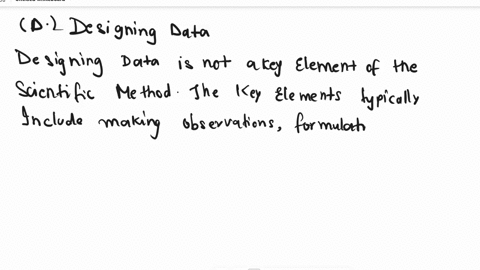 (D.) Designing Data
Designing Data is not a key Element of the
Scientific Method. The Key Elements typically
Include making observations, formulat